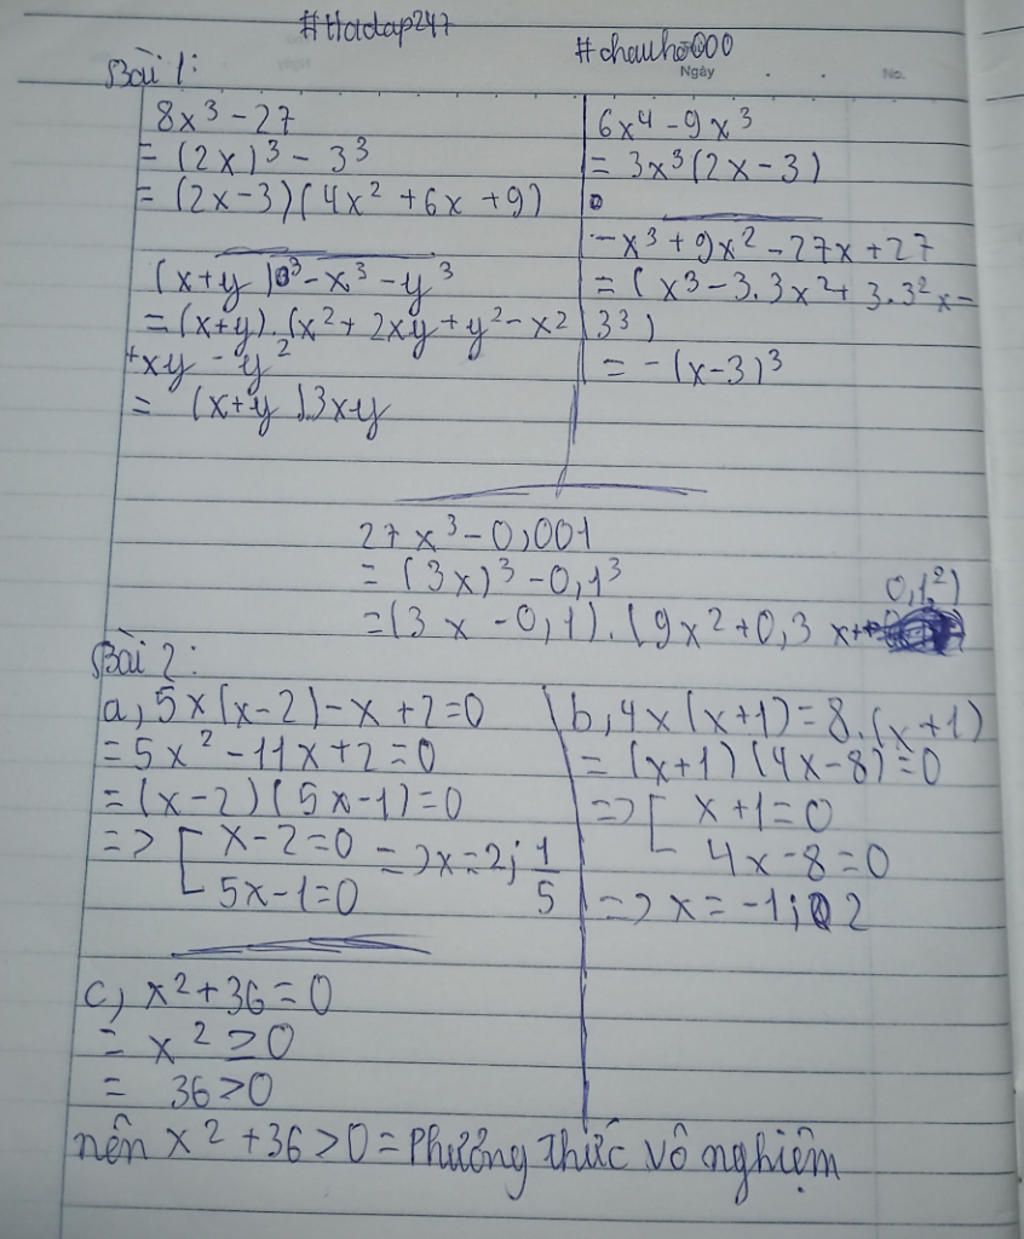 #Hoidap247
#chauho000
Ngày
No.
Bài 1:
8x³ - 27
= (2x)³ - 3³
= (2x-3)(4x² + 6x + 9)
6x⁴ - 9x³
= 3x³(2x-3)
(x+y)³ - x³ - y³
= (x+y).(x² + 2xy + y² - x²
+xy - y²
= (x+y).3xy
-x³ + 9x² - 27x + 27
= (x³ - 3.3x² + 3.3²x -
3³)
= -(x-3)³
27x³ - 0,001
= (3x)³ - 0,1³
= (3x - 0,1).(9x² + 0,3x + 0,1²)
Bài 2:
a, 5x(x-2) - x + 2 = 0
= 5x² - 11x + 2 = 0
= (x-2)(5x-1) = 0
=> [ x-2=0
5x-1=0 => x=2; 1/5
b, 4x(x+1) = 8.(x+1)
= (x+1)(4x-8) = 0
=> [ x+1=0
4x-8=0
=> x = -1; 2
c, x² + 36 = 0
= x² ≥ 0
= 36 > 0
nên x² + 36 > 0 = Phương thức vô nghiệm